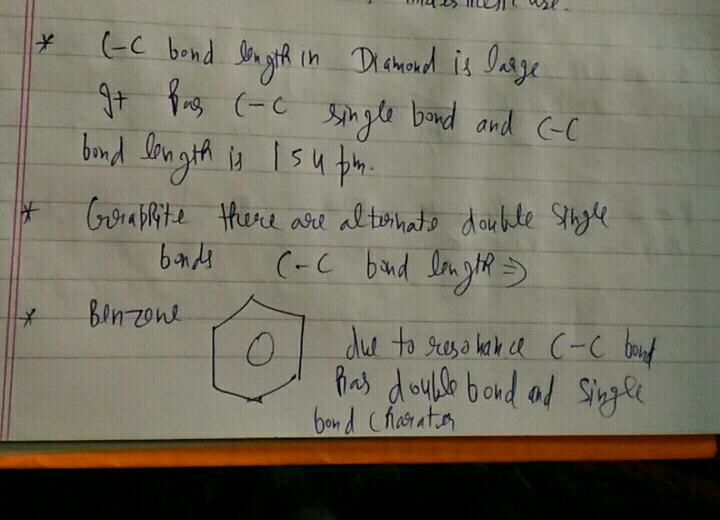 * C-C bond length in Diamond is large
It has C-C single bond and C-C
bond length is 154 pm.
* Graphite there are alternate double single
bonds C-C bond length ⇒
* Benzene
due to resonance C-C bond
has double bond and single
bond charater